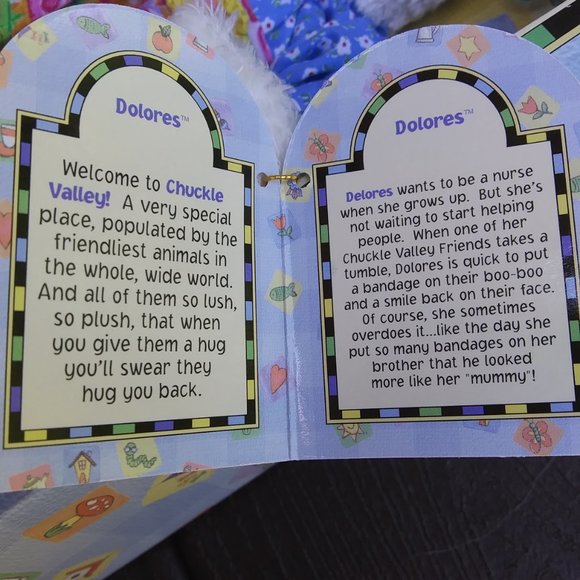 Dolores™
Welcome to Chuckle
Valley! A very special
place, populated by the
friendliest animals in
the whole, wide world.
And all of them so lush,
so plush, that when
you give them a hug
you'll swear they
hug you back.
Dolores™
Delores wants to be a nurse
when she grows up. But she's
not waiting to start helping
people. When one of her
Chuckle Valley Friends takes a
tumble, Dolores is quick to put
a bandage on their boo-boo
and a smile back on their face.
Of course, she sometimes
overdoes it...like the day she
put so many bandages on her
brother that he looked
more like her "mummy"!